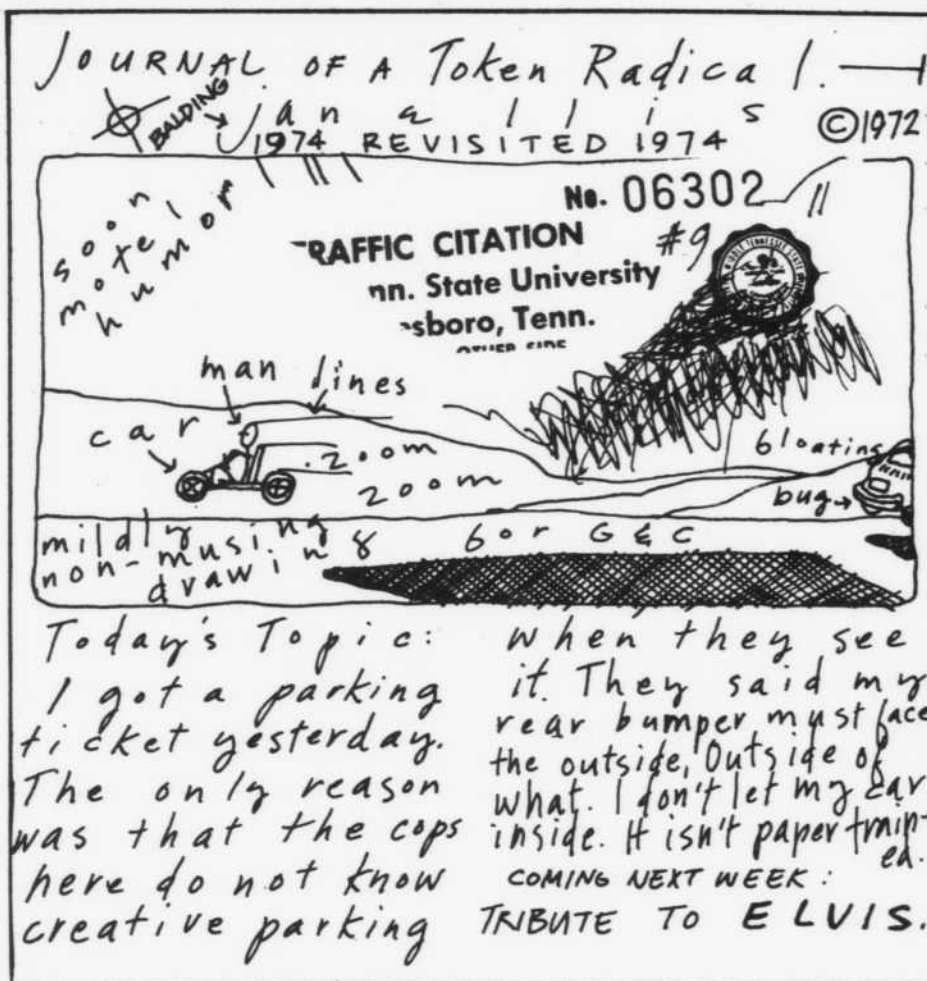 JOURNAL OF A Token Radical.
BALDING
Janallis
©1972
1974 REVISITED 1974
soon
motel
humor
No. 06302
#9
RAFFIC CITATION
nn. State University
sboro, Tenn.
OTHER SIDE
man lines
car
zoom
zoom
bloating
bug
mildly
non-musing
drawing
& for G&C
Today's Topic:
I got a parking
ticket yesterday.
The only reason
was that the cops
here do not know
creative parking
when they see
it. They said my
rear bumper must face
the outside, Outside of
what. I don't let my car
inside. It isn't paper train-
ed.
COMING NEXT WEEK:
TRIBUTE TO ELVIS.